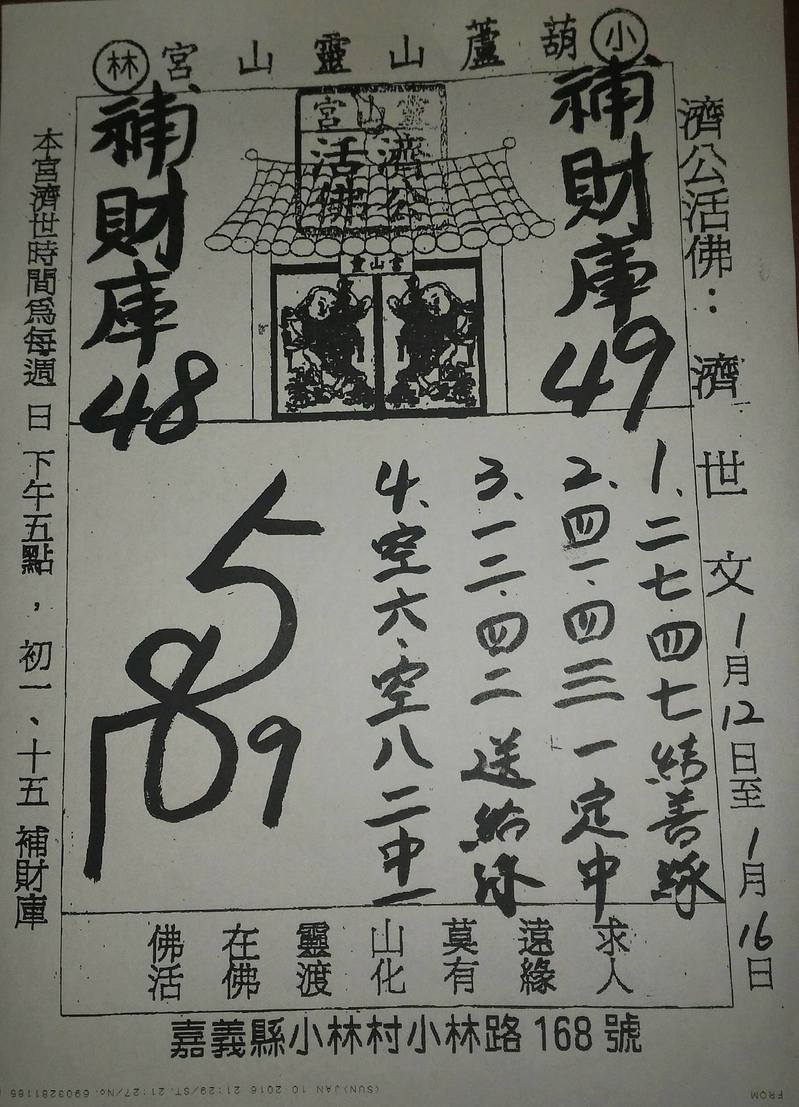 小 葫蘆山靈山宮 林
濟公活佛：濟世文 1月12日至1月16日
補財庫49
靈山宮
濟公
活佛
宮山靈
補財庫48
1、二七、四七結善緣
2、四一、四三一定中
3、一二、四二送給你
4、空六、空八二中一
5
7 8 9
求人
遠緣
莫有
山化
靈渡
在佛
佛活
本宮濟世時間為每週日下午五點，初一、十五補財庫
嘉義縣小林村小林路168號
FROM
(SUN)JAN 10 2016 21:29/ST.21:27/No.6903281165